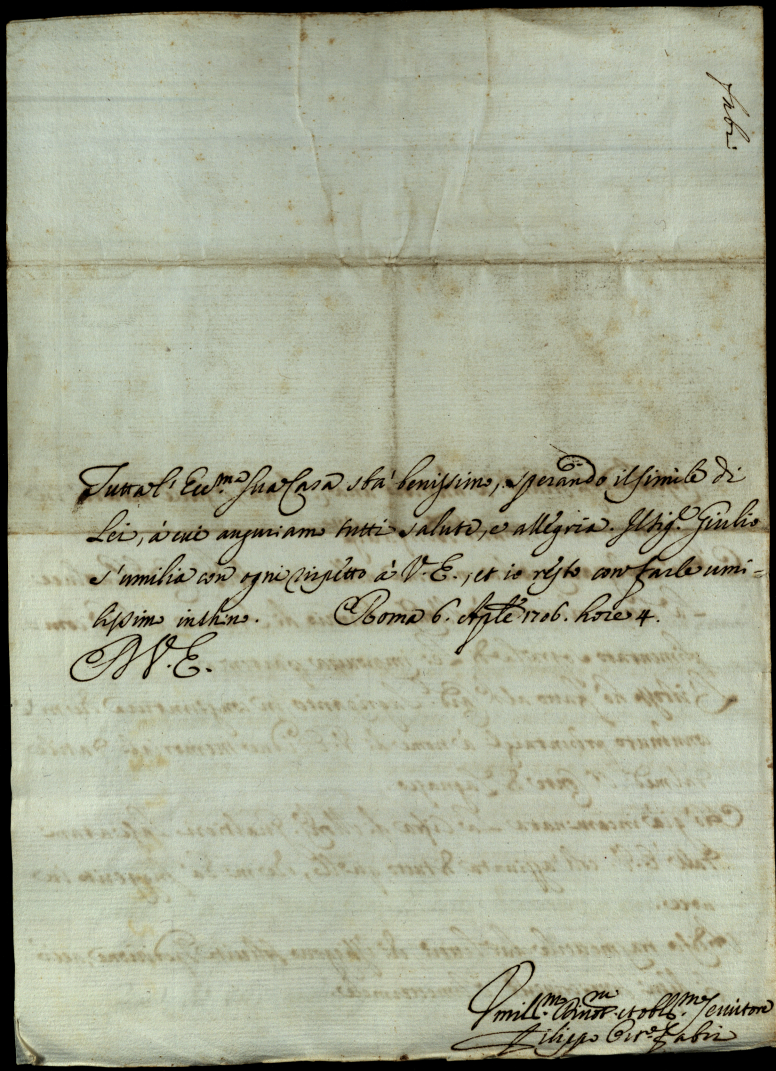 Fabri
Tutta l'Ecc.ma sua Casa stà benissimo, sperando il simile di
Lei, à cui auguriamo tutti salute, e allegria. Il Sig.r Giulio
s'umilia con ogni rispetto à V.E., et io resto con farle umi-
lissimo inchino. Roma 6. Aple 1706. hore 4.
D V.E.
Umill.mo Divot.mo et obbl.mo Servitore
Filippo Fabri